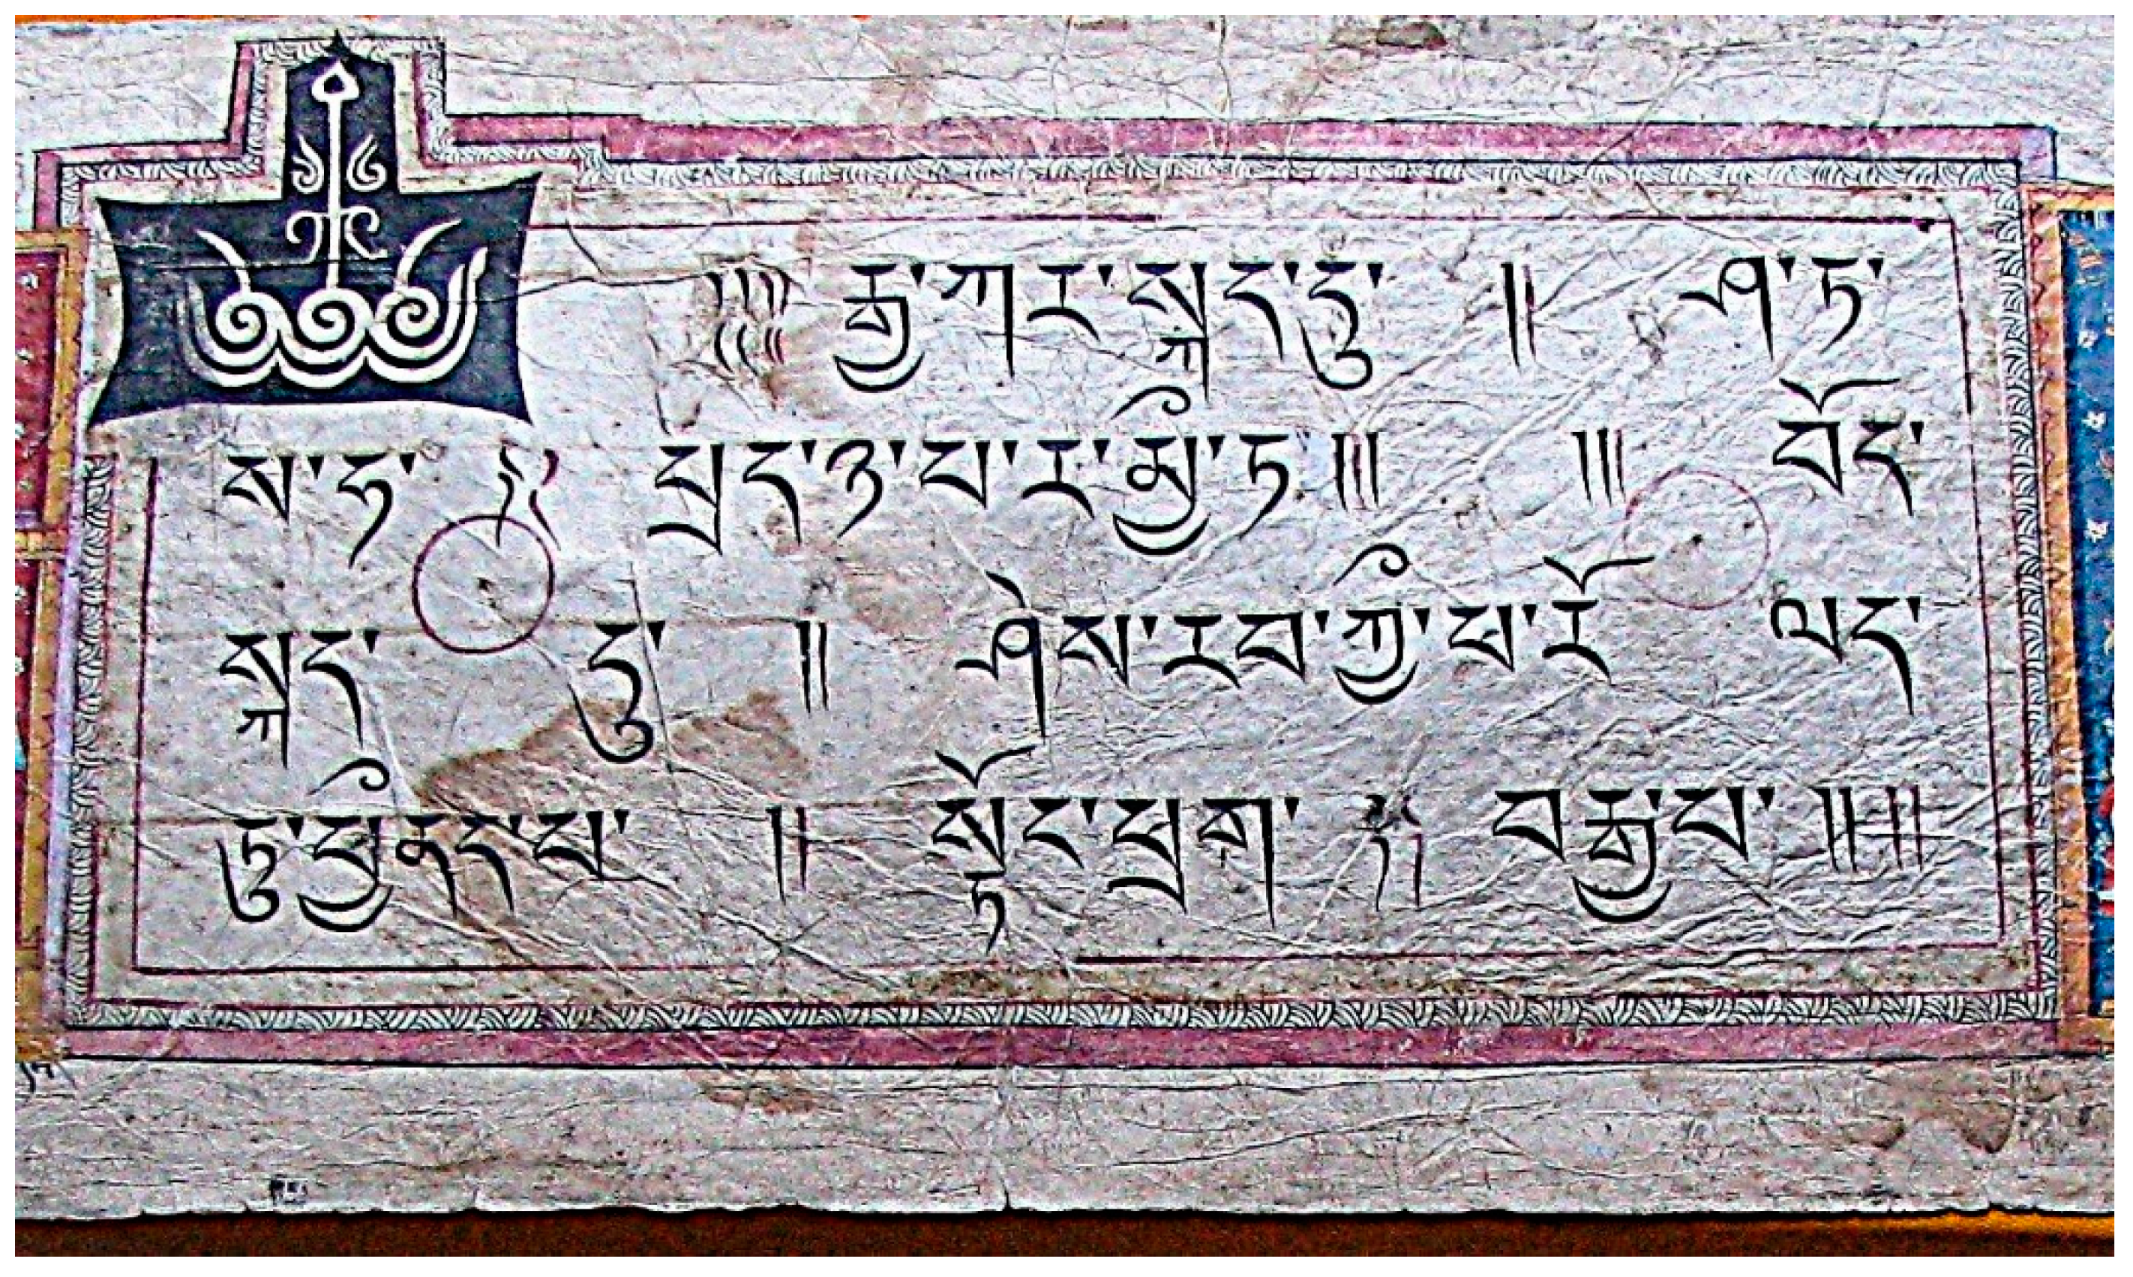 ༄༅།། །།རྒྱ་ཀར་སྐད་དུ་ །། ཤ་ཏ་
ས་ཧ་ སྲ་ པྲད་ཉ་པ་ར་མྱི་ཏ།།། །།། བོད་
སྐད་ དུ་ །། ཤེས་རབ་ཀྱི་ཕ་རོལ་
ཏུ་ཕྱིནད་པ་ །། སྟོང་ཕྲག་ བརྒྱ་པ་ །།།།